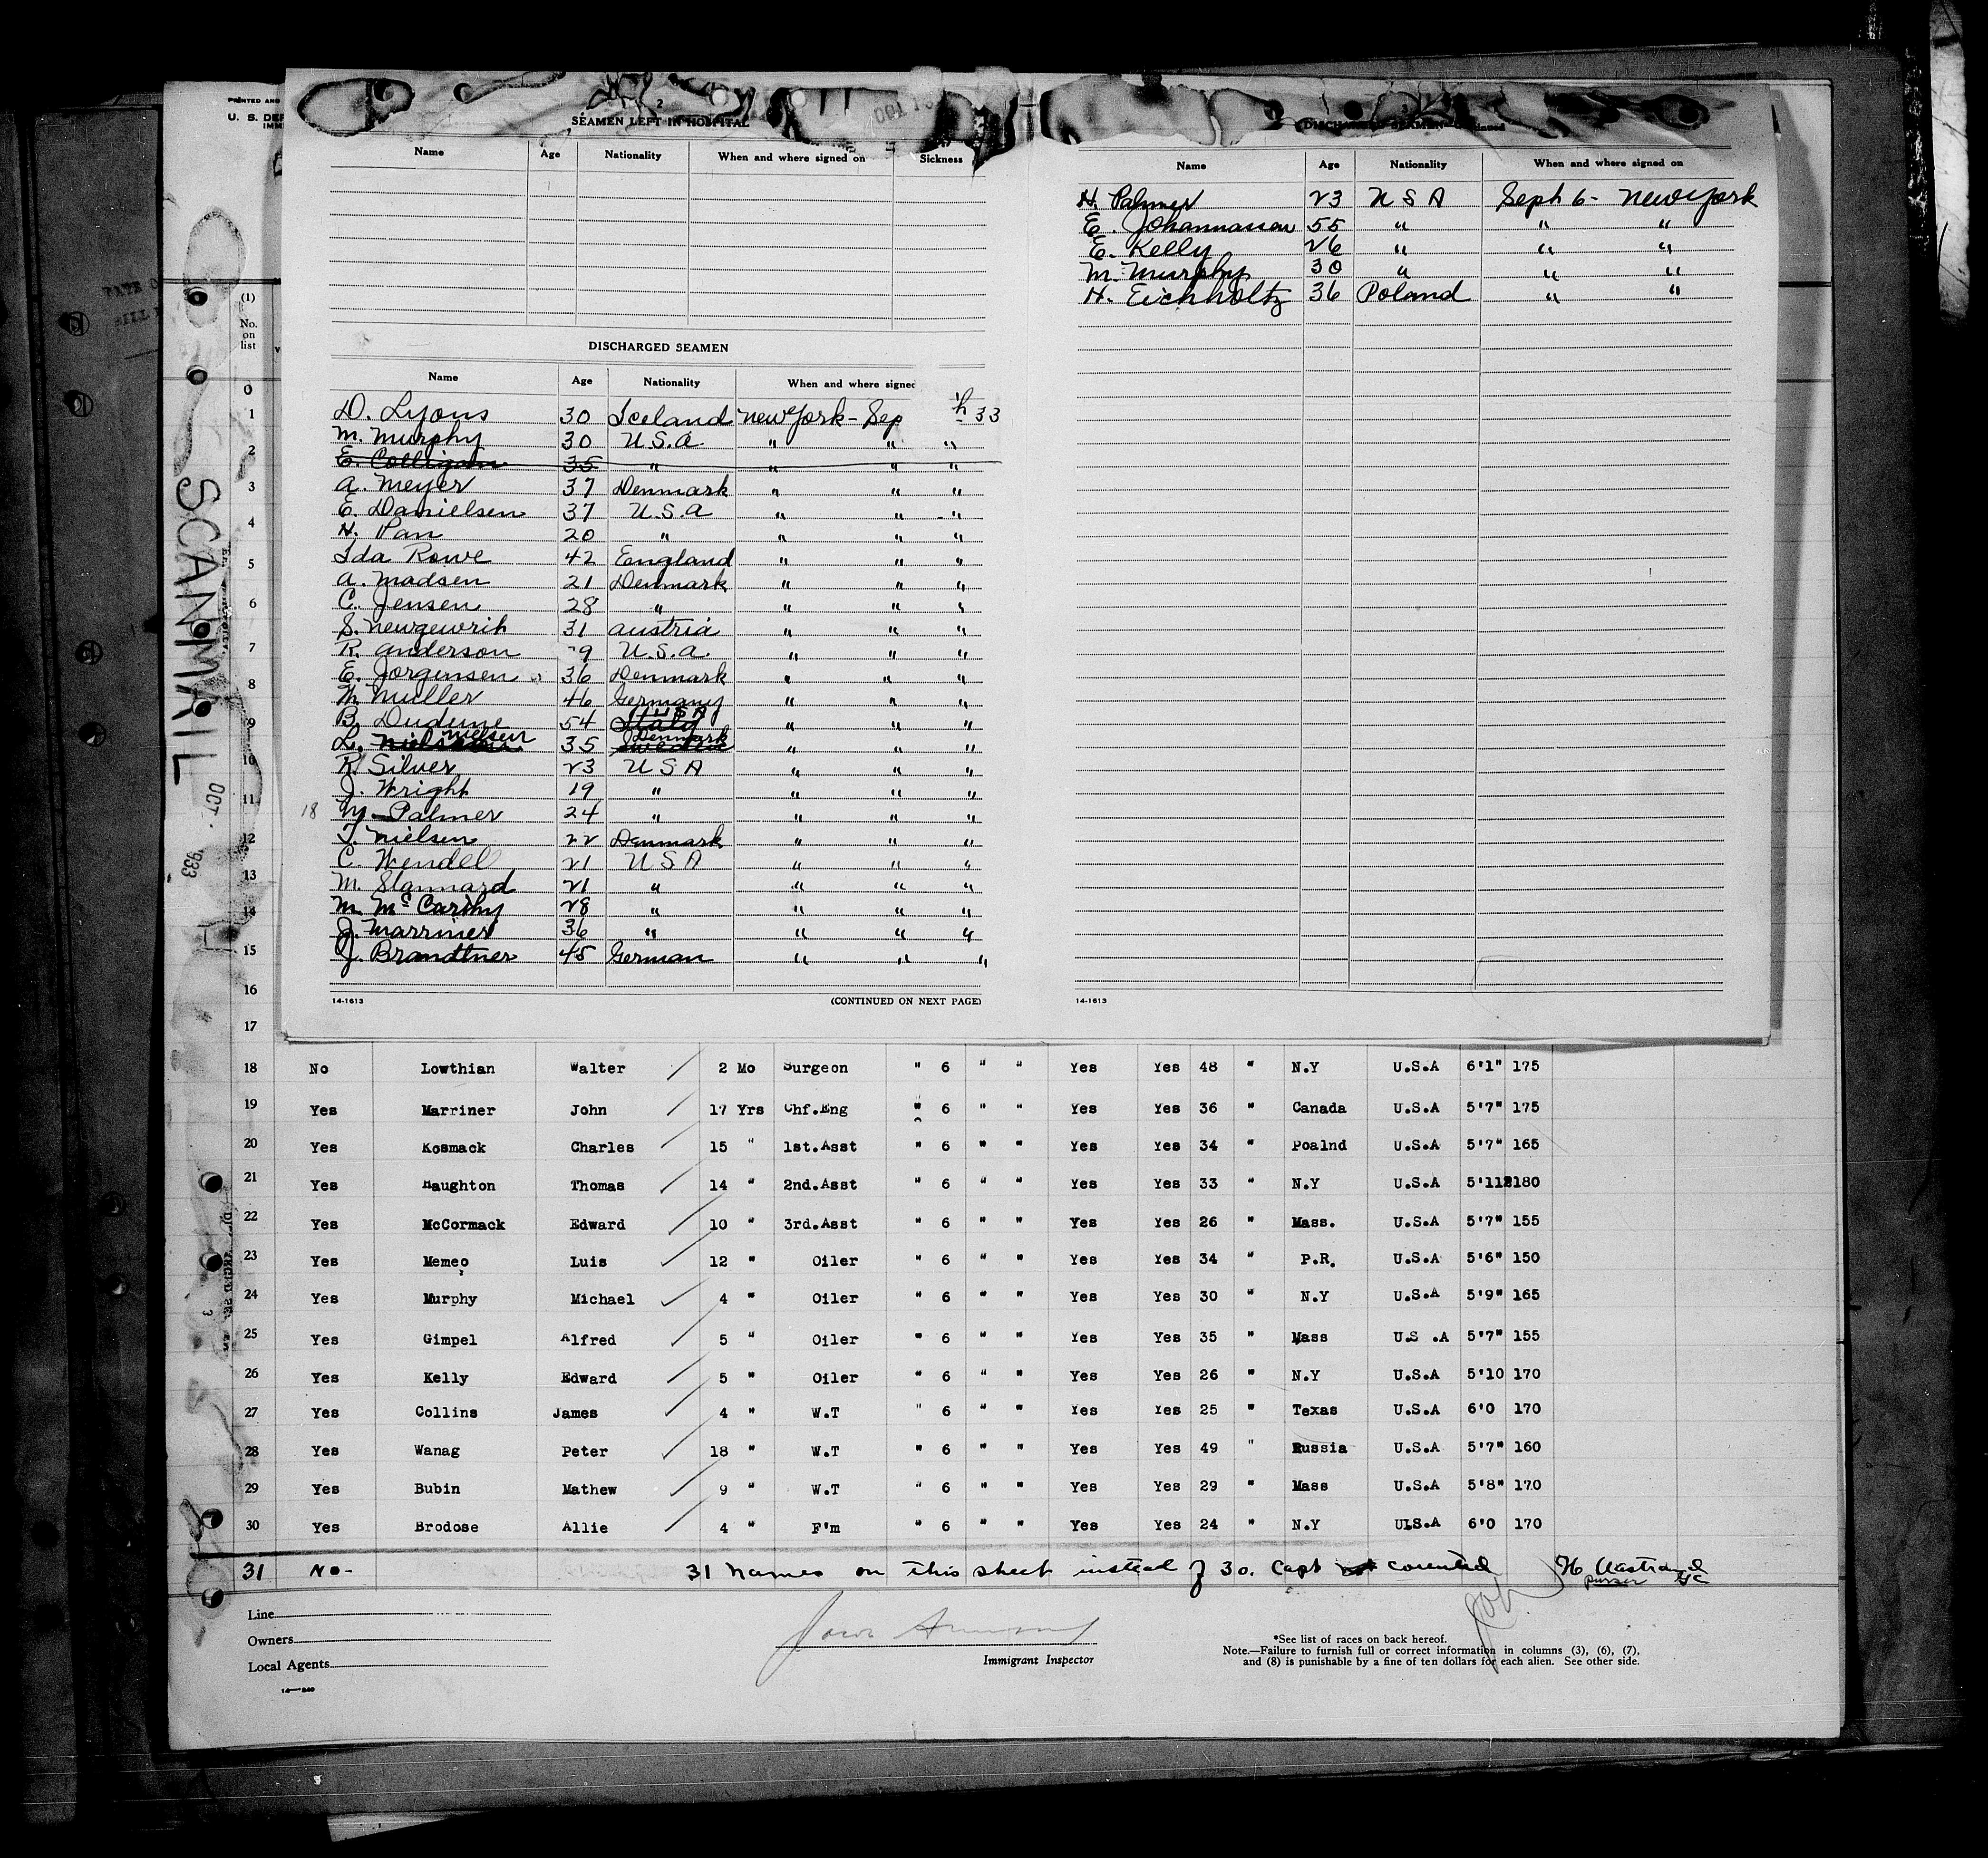 PRINTED AND
U. S. DEP
IMM
2
SEAMEN LEFT IN HOSPITAL
Name Age Nationality When and where signed on Sickness
DISCHARGED SEAMEN
Name Age Nationality When and where signed
D. Lyons 30 Iceland New York - Sep h 33
M. Murphy 30 U.S.A. " " "
E. Colligan 35 " " " "
A. Meyer 37 Denmark " " "
E. Danielsen 37 U.S.A " " "
H. Pan 20 " " " "
Ida Rowe 42 England " " "
A. Madsen 21 Denmark " " "
C. Jensen 28 " " " "
S. Newgewrih 31 Austria " " "
R. Anderson 9 U.S.A. " " "
E. Jorgensen 36 Denmark " " "
M. Muller 46 Germany " " "
B. Dudume 54 Italy USA " " "
L. Nielsen 35 Sweden Denmark " " "
R. Silver 23 U S A " " "
J. Wright 19 " " " "
18 M. Palmer 24 " " " "
T. Nielsen 22 Denmark " " "
C. Wendel 21 U S A " " "
M. Stannard 21 " " " "
M. McCarthy 28 " " " "
J. Marriner 36 " " " "
J. Brandtner 45 German " " "
14-1613 (CONTINUED ON NEXT PAGE)
3
DISCHARGED SEAMEN—Continued
Name Age Nationality When and where signed on
H. Palmer 23 U S A Sept 6 - New York
E. Johannassen 55 " " "
E. Kelly 26 " " "
M. Murphy 30 " " "
H. Eichholtz 36 Poland " "
14-1613
SCANMAIL
OCT. 1933
(1)
No. on list
0
1
2
3
4
5
6
7
8
9
10
11
12
13
14
15
16
17
18 No Lowthian Walter 2 Mo Surgeon " 6 " " Yes Yes 48 " N.Y U.S.A 6'1" 175
19 Yes Marriner John 17 Yrs Chf.Eng " 6 " " Yes Yes 36 " Canada U.S.A 5'7" 175
20 Yes Kosmack Charles 15 " 1st.Asst " 6 " " Yes Yes 34 " Poalnd U.S.A 5'7" 165
21 Yes Haughton Thomas 14 " 2nd.Asst " 6 " " Yes Yes 33 " N.Y U.S.A 5'11" 180
22 Yes McCormack Edward 10 " 3rd.Asst " 6 " " Yes Yes 26 " Mass. U.S.A 5'7" 155
23 Yes Memeo Luis 12 " Oiler " 6 " " Yes Yes 34 " P.R. U.S.A 5'6" 150
24 Yes Murphy Michael 4 " Oiler " 6 " " Yes Yes 30 " N.Y U.S.A 5'9" 165
25 Yes Gimpel Alfred 5 " Oiler " 6 " " Yes Yes 35 " Mass U.S .A 5'7" 155
26 Yes Kelly Edward 5 " Oiler " 6 " " Yes Yes 26 " N.Y U.S.A 5'10 170
27 Yes Collins James 4 " W.T " 6 " " Yes Yes 25 " Texas U.S.A 6'0 170
28 Yes Wanag Peter 18 " W.T " 6 " " Yes Yes 49 " Russia U.S.A 5'7" 160
29 Yes Bubin Mathew 9 " W.T " 6 " " Yes Yes 29 " Mass U.S.A 5'8" 170
30 Yes Brodose Allie 4 " F'm " 6 " " Yes Yes 24 " N.Y U.S.A 6'0 170
31 No- 31 names on this sheet instead of 30. Capt not counted
Purser
Line
Owners
Local Agents
Immigrant Inspector
*See list of races on back hereof.
Note.—Failure to furnish full or correct information in columns (3), (6), (7),
and (8) is punishable by a fine of ten dollars for each alien. See other side.